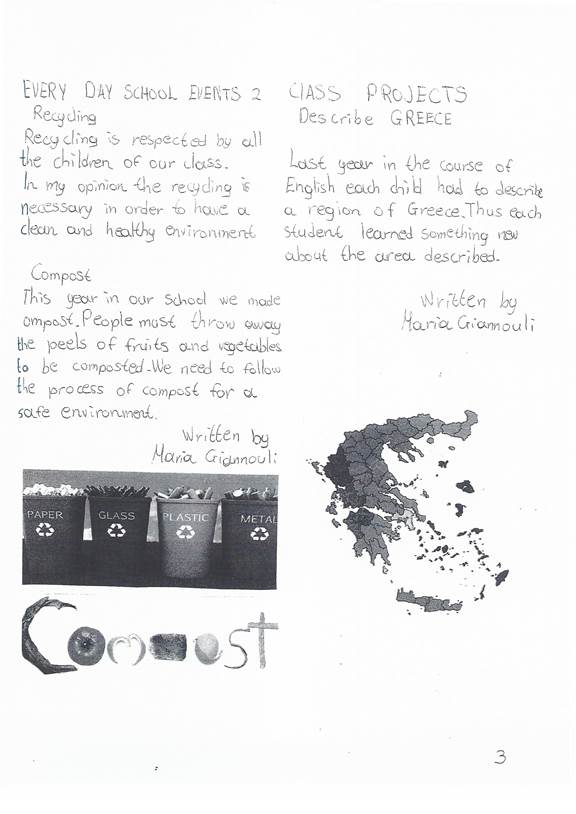 EVERY DAY SCHOOL EVENTS 2
Recycling
Recycling is respected by all
the children of our class.
In my opinion the recycling is
necessary in order to have a
clean and healthy environment
Compost
This year in our school we made
ompost. People must throw away
the peels of fruits and vegetables
to be composted. We need to follow
the process of compost for a
safe environment.
Written by
Maria Giannouli
PAPER
GLASS
PLASTIC
METAL
Compost
CLASS PROJECTS
Describe GREECE
Last year in the course of
English each child had to describe
a region of Greece. Thus each
student learned something new
about the area described.
Written by
Maria Giannouli
3